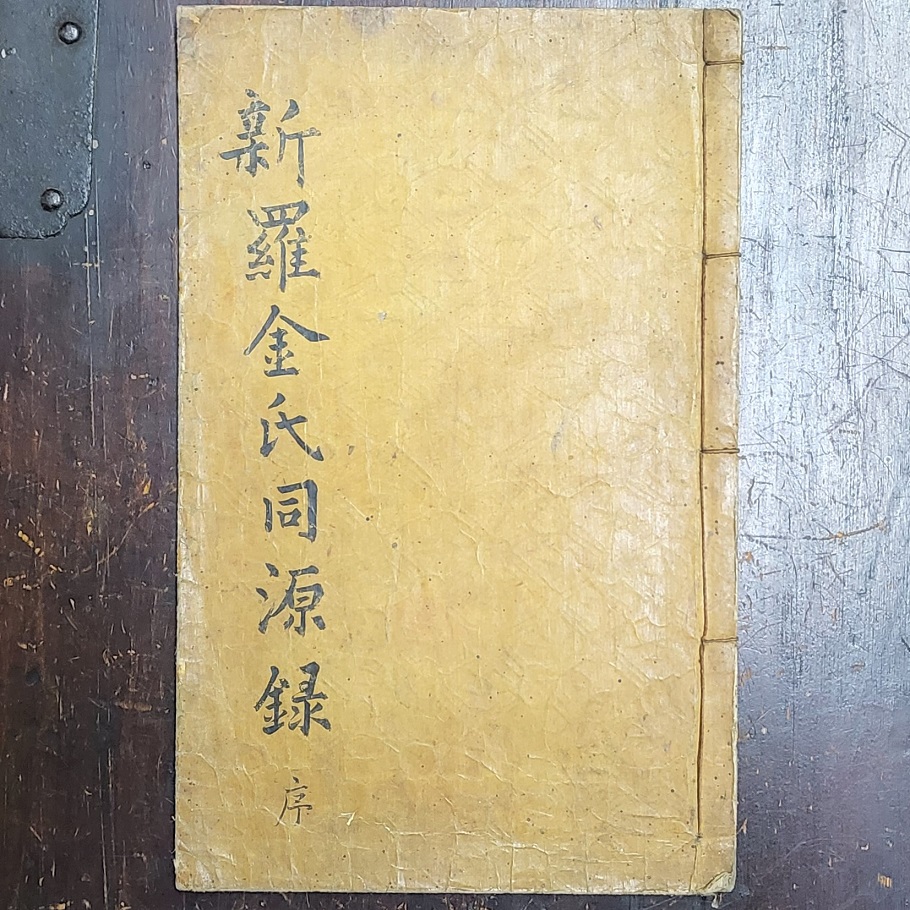 新羅金氏同源録
序